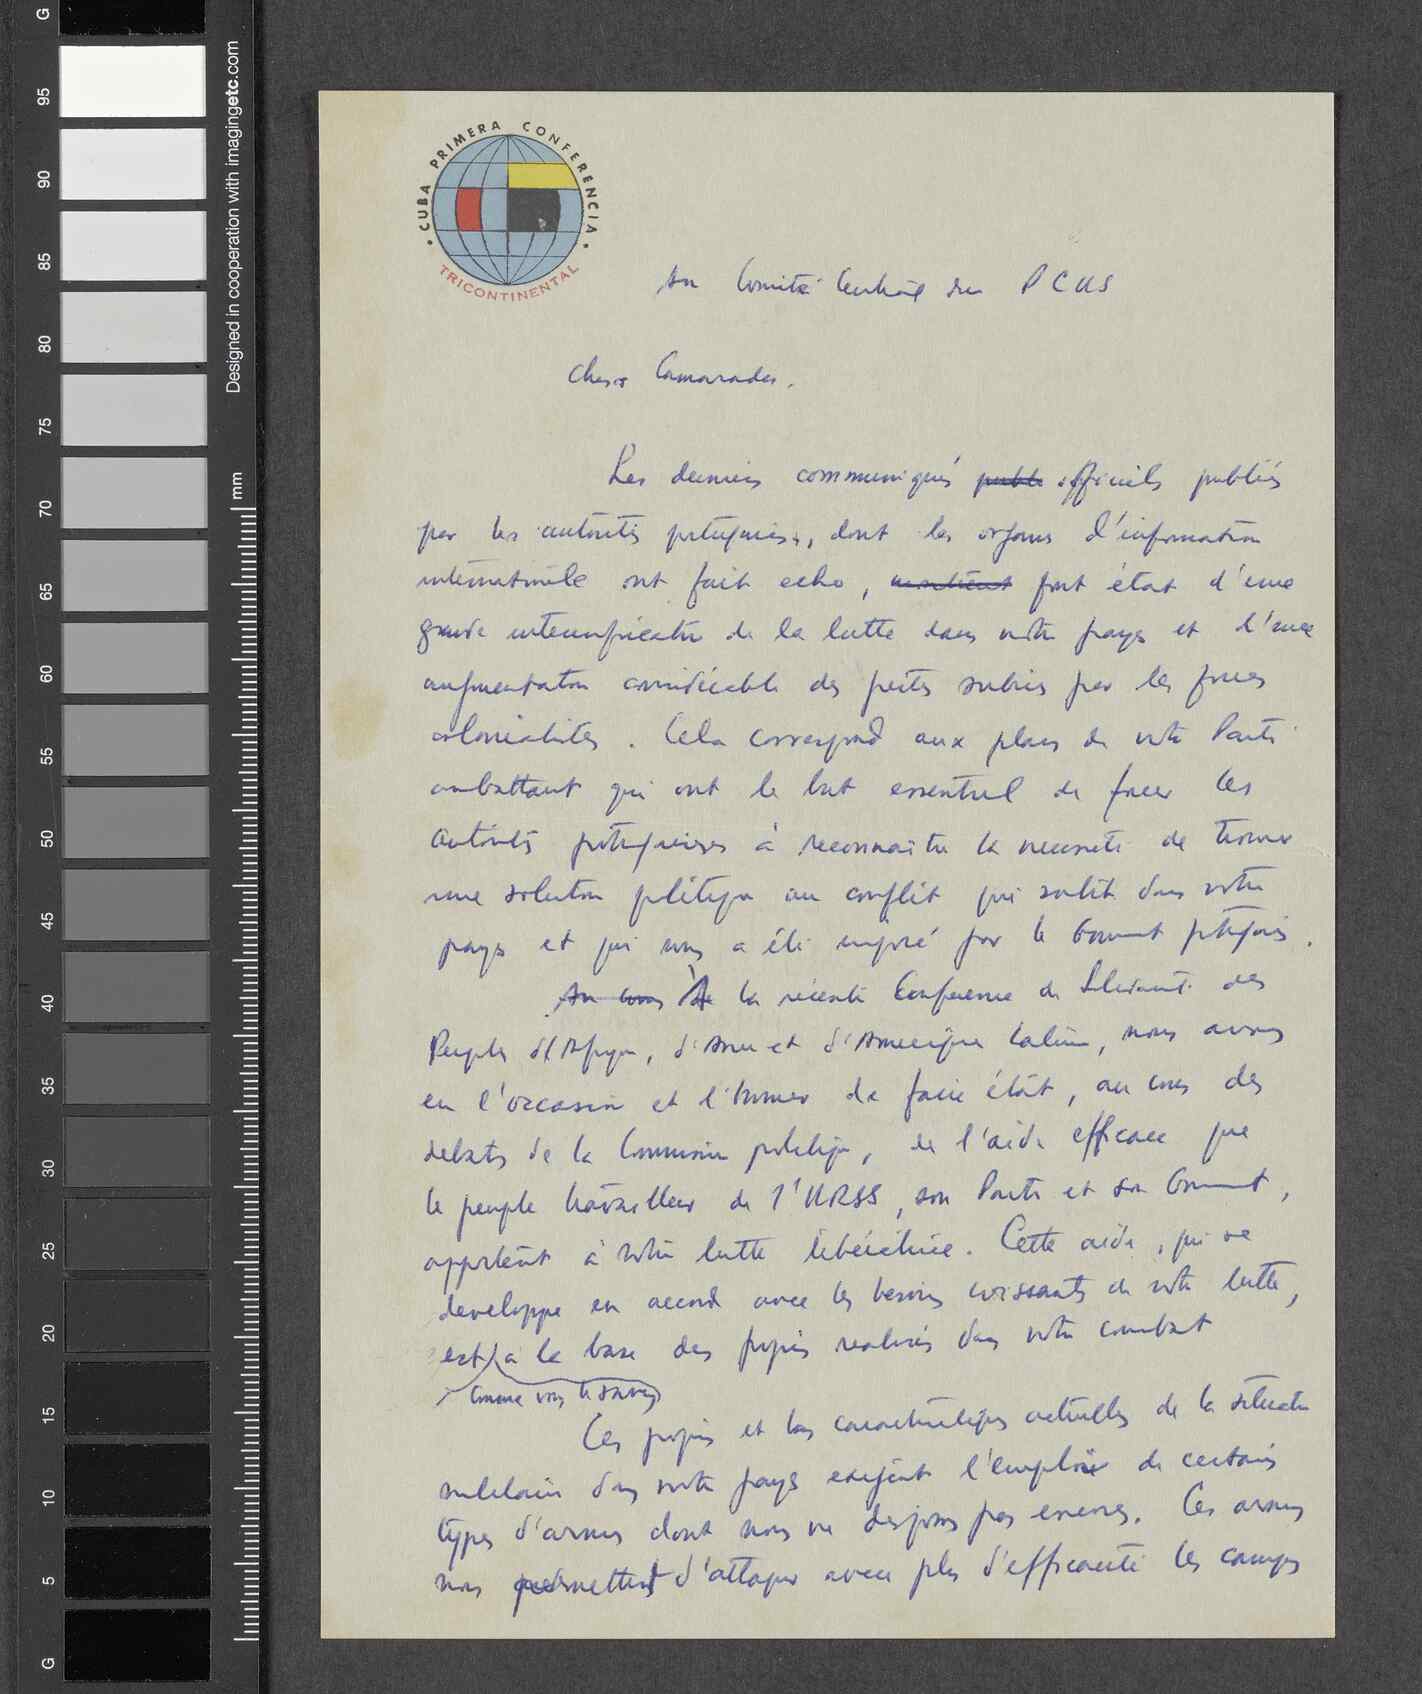 G
95
90
85
80
75
70
65
60
55
50
45
40
35
30
25
20
15
10
5
G
Designed in cooperation with imagingetc.com
mm
• CUBA PRIMERA CONFERENCIA •
TRICONTINENTAL
Au Comité Central du PCUS
Chers Camarades,
Les derniers communiqués publi officiels publiés
par les autorités portugaises, dont les organes d'information
internationale ont fait echo, font état d'une
grande intensification de la lutte dans notre pays et d'une
augmentation considérable des pertes subies par les forces
colonialistes. Cela correspond aux plans de notre Parti
combattant qui ont le but essentiel de forcer les
autorités portugaises à reconnaître la necessité de trouver
une solution politique au conflit qui sévit dans notre
pays et qui nous a été imposé par le Gouvnmt portugais.
Au cours A la récente Conférence de Solidarité des
Peuples d'Afrique, d'Asie et d'Amerique Latine, nous avons
eu l'occasion et l'honneur de faire état, au cours des
debats de la Commission politique, de l'aide efficace que
le peuple travailleur de l'URSS, son Parti et son Gouvnmt,
apportent à notre lutte libératrice. Cette aide, qui se
developpe en accord avec les besoins croissants de notre lutte,
est à la base des progrès realisés dans notre combat
comme vous le savez
Ces progrès et les caractéristiques actuelles de la situation
militaire dans notre pays exigent l'emploi de certains
types d'armes dont nous ne disposons pas encore. Ces armes
nous permettent d'attaquer avec plus d'efficacité les camps